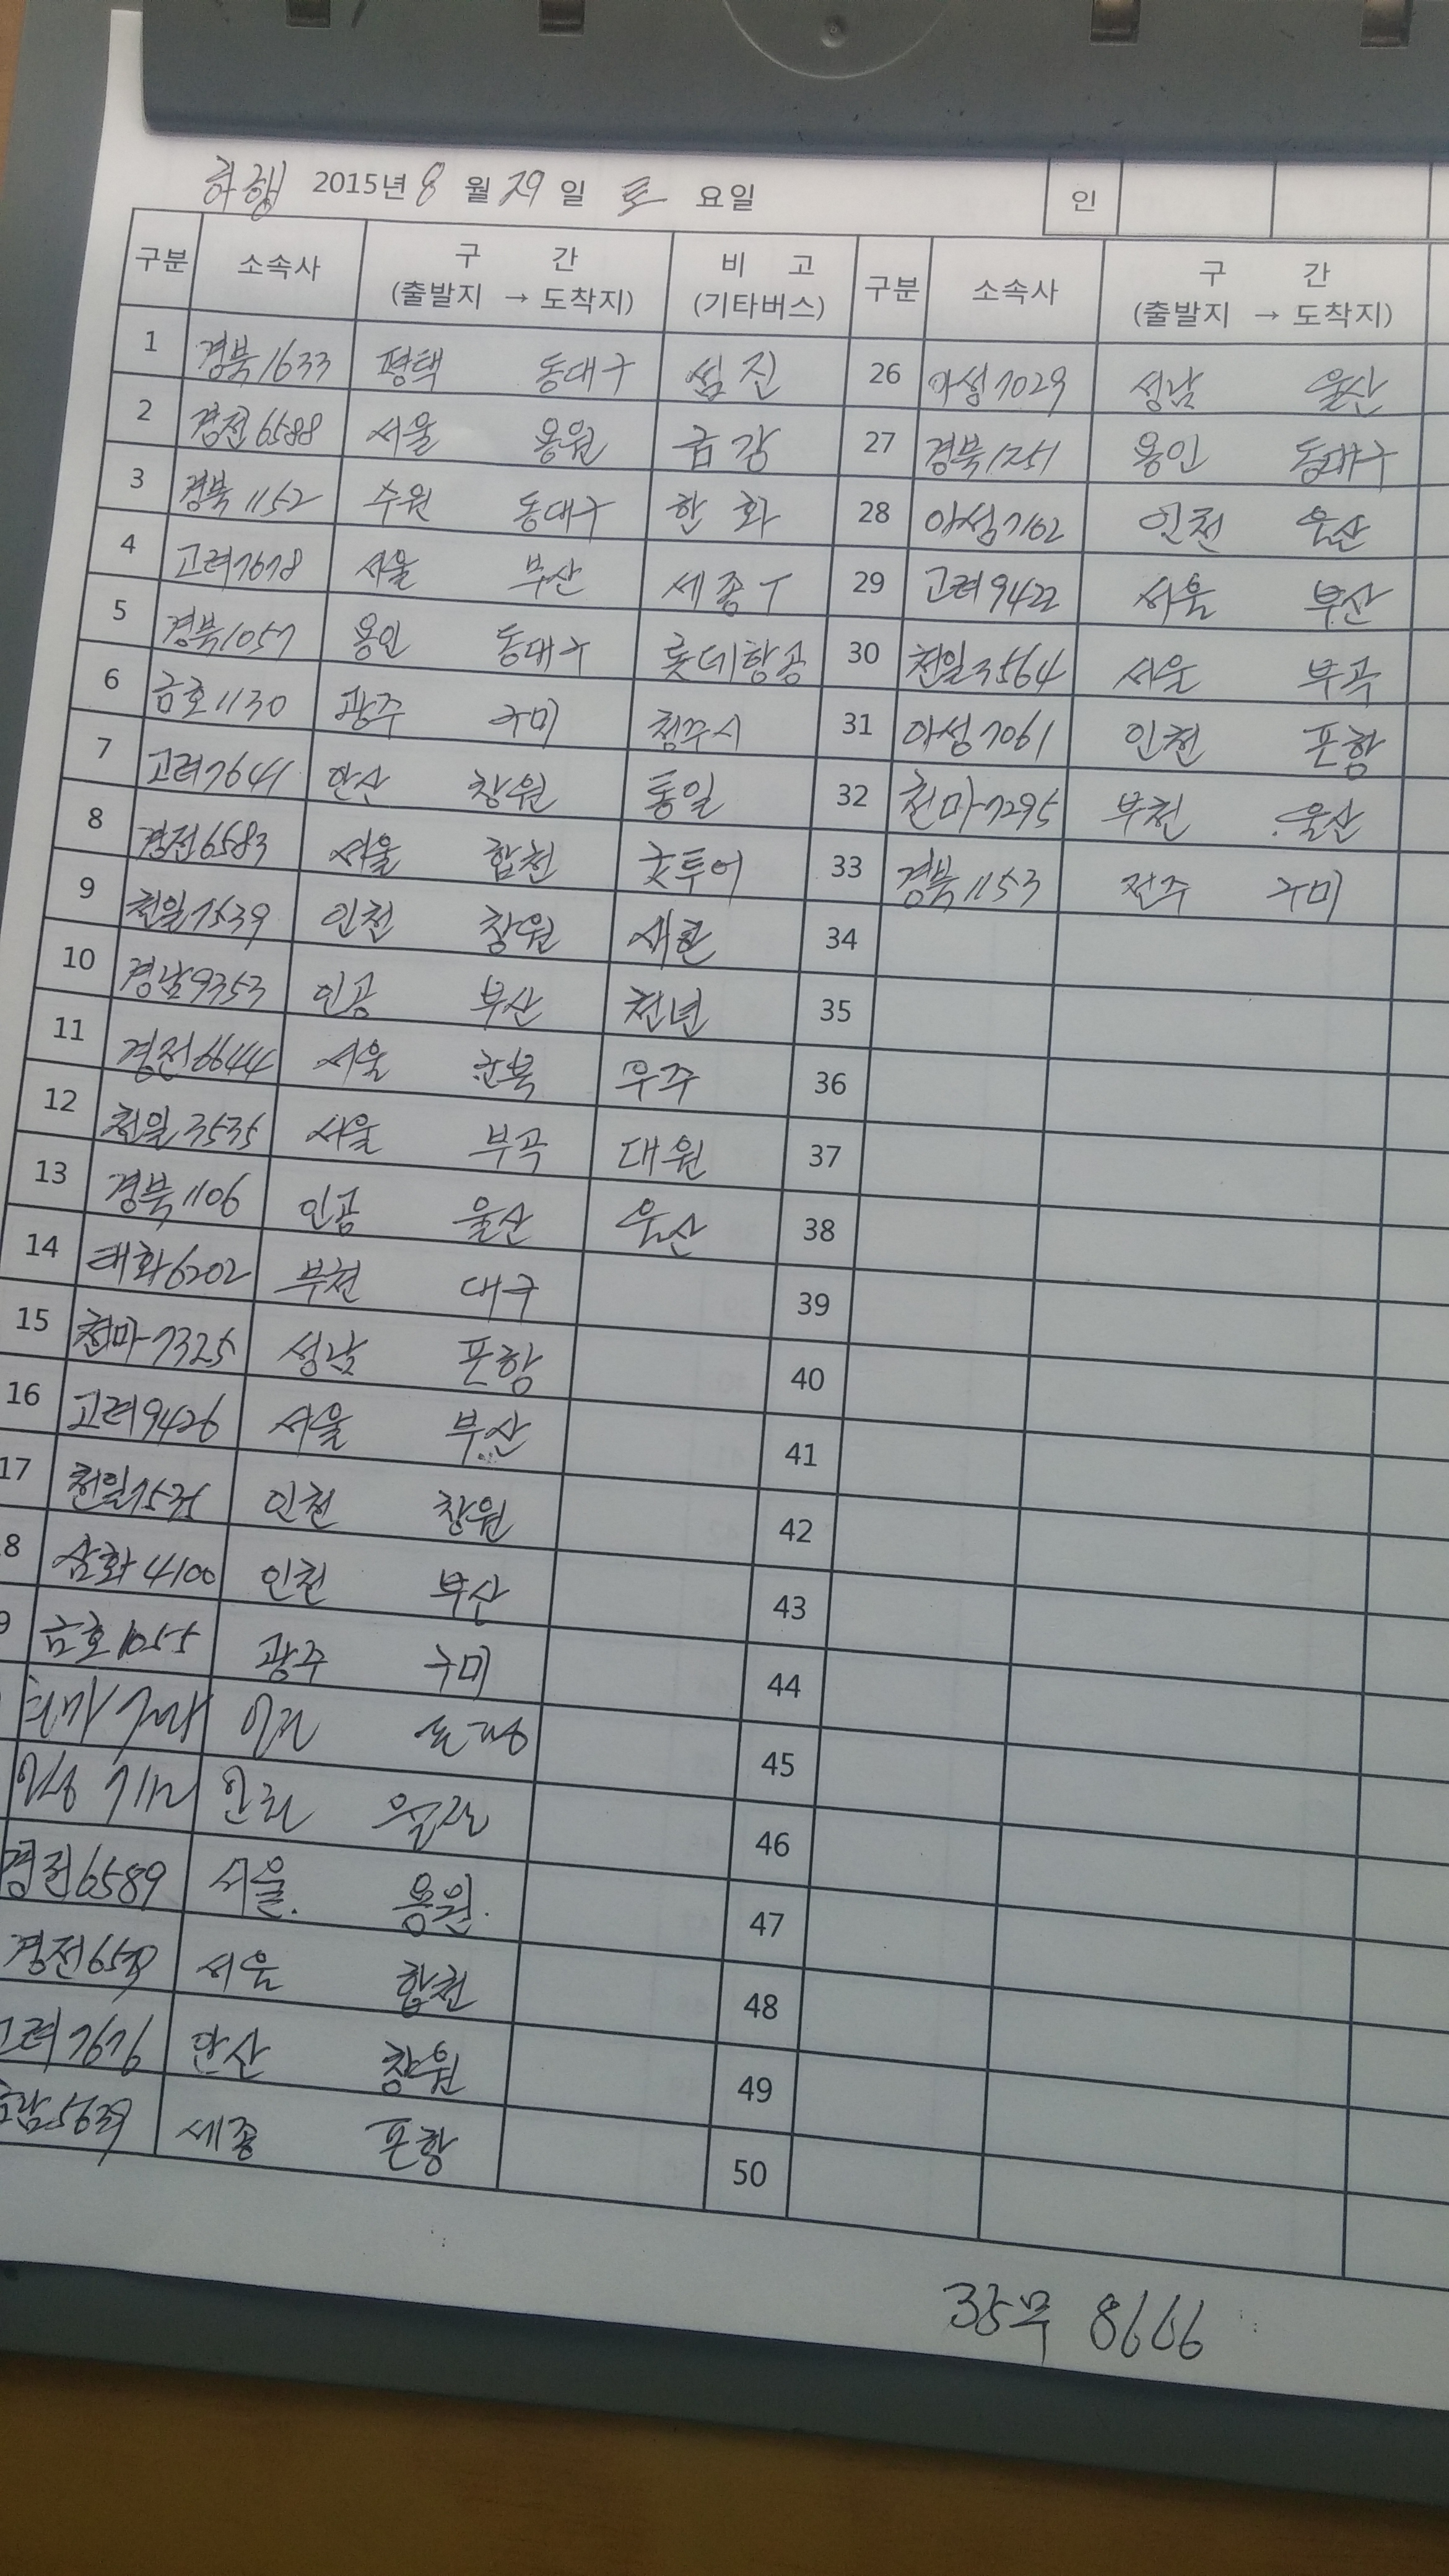 하행 2015년 8월 29일 토요일 인
구분 소속사 구 간 (출발지 → 도착지) 비 고 (기타버스) 구분 소속사 구 간 (출발지 → 도착지)
1 경북1633 평택 동대구 섬진 26 아성7029 성남 울산
2 경전6588 서울 용원 금강 27 경북1251 용인 동대구
3 경북1152 수원 동대구 한화 28 아성7162 인천 울산
4 고려7678 서울 부산 세종T 29 고려9422 서울 부산
5 경북1057 용인 동대구 롯데항공 30 천일3564 서울 부곡
6 금호1130 광주 구미 청주시 31 아성7061 인천 포항
7 고려7641 안산 창원 통일 32 천마7295 부천 울산
8 경전6583 서울 합천 굿투어 33 경북1153 전주 구미
9 천일7539 인천 창원 새한 34
10 경남9353 인공 부산 천년 35
11 경전6644 서울 군북 우주 36
12 천일3535 서울 부곡 대원 37
13 경북1106 인공 울산 울산 38
14 태화6202 부천 대구 39
15 천마7325 성남 포항 40
16 고려9426 서울 부산 41
17 천일7535 인천 창원 42
8 삼화4100 인천 부산 43
9 금호1055 광주 구미 44
45
46
경전6589 서울 용원 47
경전 서울 합천 48
고려7676 안산 창원 49
세종 포항 50
8666